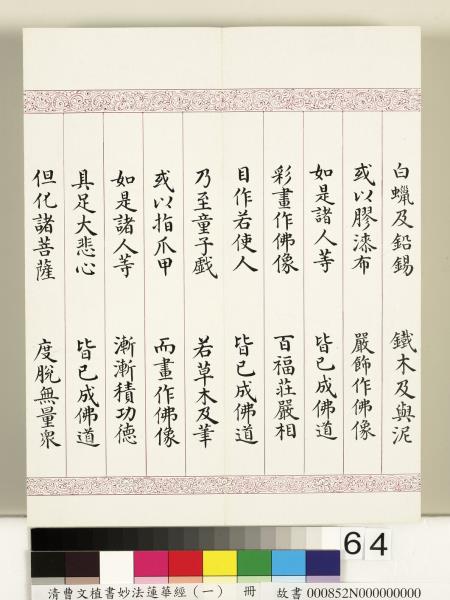 白蠟及鉛錫　鐵木及與泥
或以膠漆布　嚴飾作佛像
如是諸人等　皆已成佛道
彩畫作佛像　百福莊嚴相
自作若使人　皆已成佛道
乃至童子戲　若草木及筆
或以指爪甲　而畫作佛像
如是諸人等　漸漸積功德
具足大悲心　皆已成佛道
但化諸菩薩　度脫無量眾
64
清曹文植書妙法蓮華經（一）　冊　故書 000852N000000000